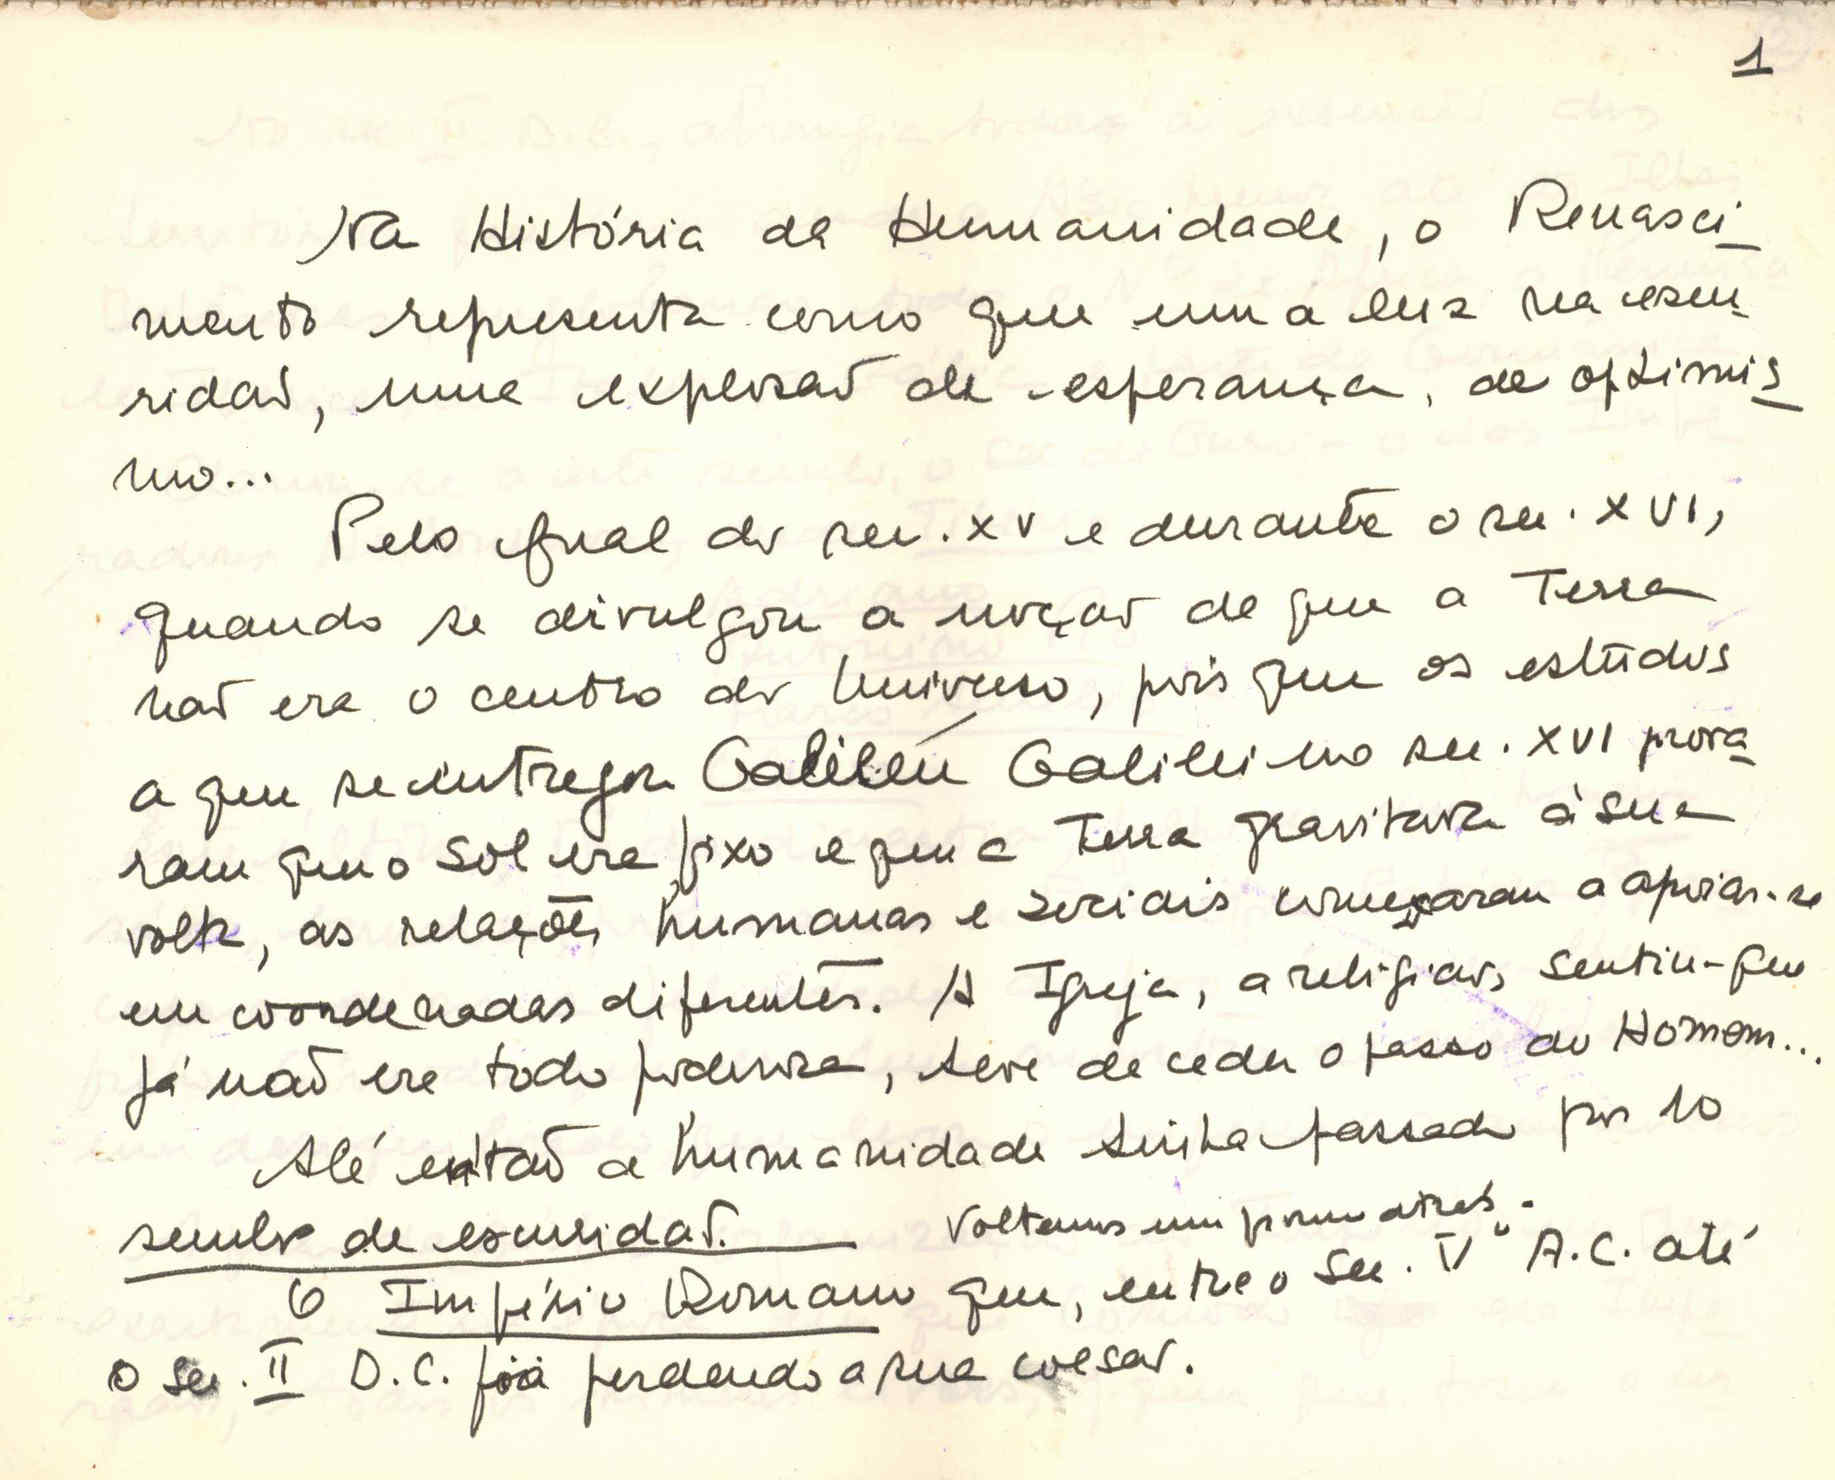 1
Na História da Humanidade, o Renasci
mento representa como que uma luz na escu
ridão, uma explosão de esperança, de optimis
mo...
Pelo final do sec. XV e durante o sec. XVI,
quando se divulgou a noção de que a Terra
não era o centro do Universo, pois que os estudos
a que se entregou Galileu Galilei no sec. XVI prova
ram que o Sol era fixo e que a Terra gravitava à sua
volta, as relações humanas e sociais começaram a apoiar-se
em coordenadas diferentes. A Igreja, a religião, sentiu-que
já não era todo poderosa, teve de ceder o passo ao Homem...
Até então a humanidade tinha passado por 10
seculos de escuridão. Voltemos um pouco atrás.
O Império Romano que, entre o Sec. V A.C. até
o Sec. II D.C. foi perdendo a sua coesão.